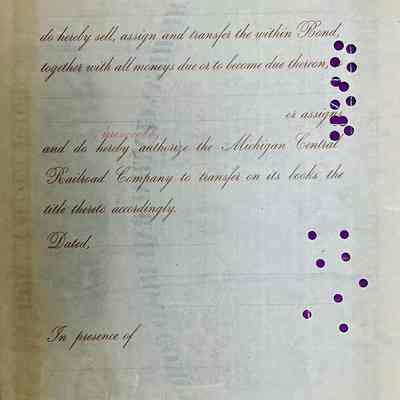 do hereby sell, assign and transfer the within Bond,
together with all moneys due or to become due thereon,
or assigns
and do hereby authorize the Michigan Central
Railroad Company to transfer on its books the
title thereto accordingly.
Dated,
In presence of